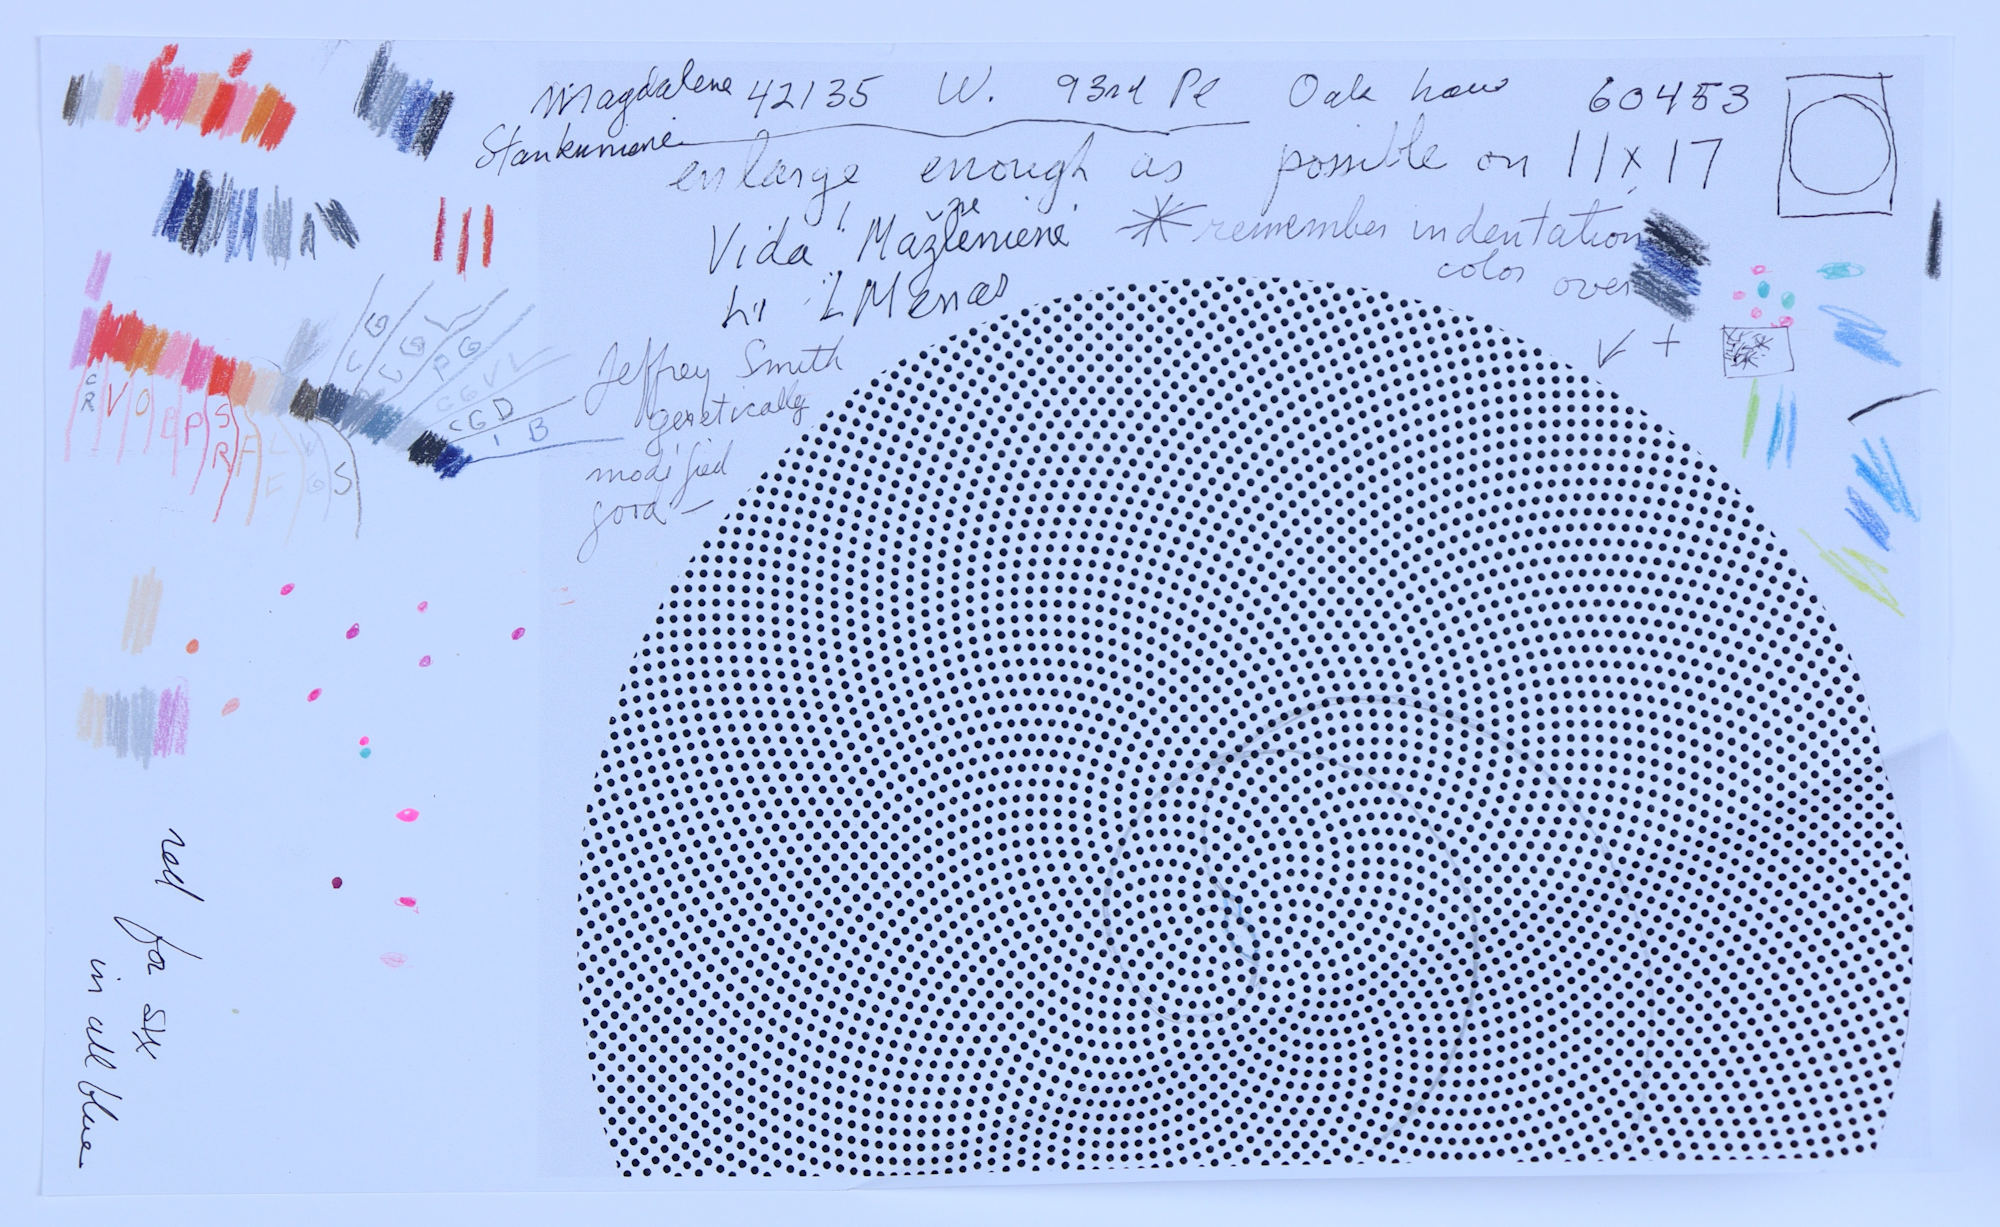 Magdalena 42135 W. 93rd Pl Oak Lawn 60453
Stankuniene
enlarge enough as possible on 11x17
Vida Maženiene
* remember indentation
color over
Jeffrey Smith
genetically
modified
good -
C R V O B P S R
L G L G P G
C G D
I B
S
red for six
in all blue